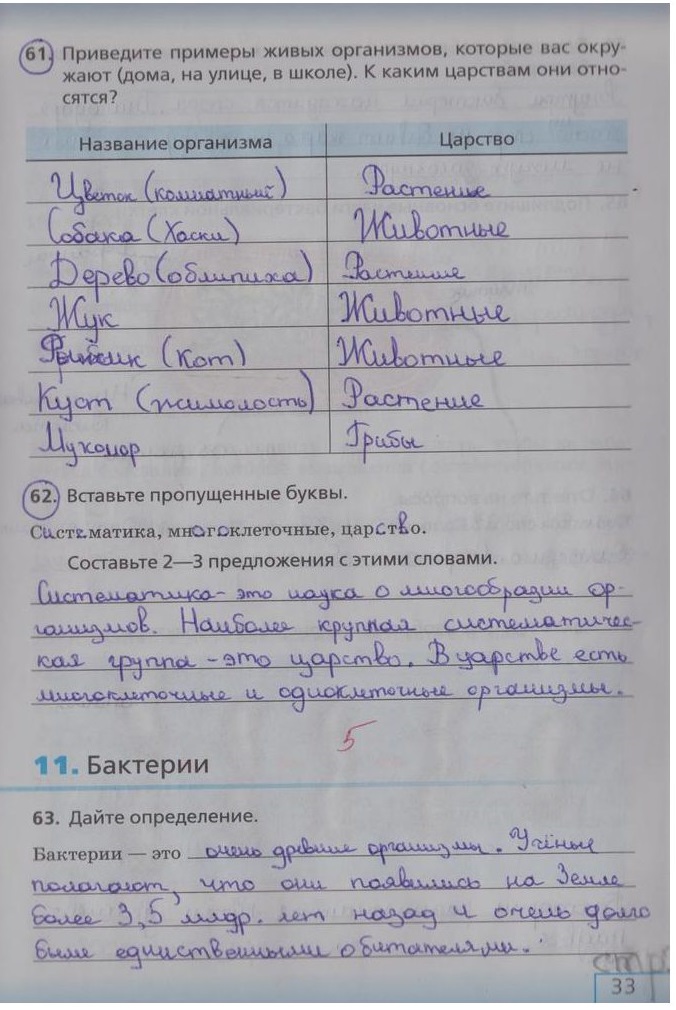 61. Приведите примеры живых организмов, которые вас окру-
жают (дома, на улице, в школе). К каким царствам они отно-
сятся?
Название организма Царство
Цветок (комнатный) Растение
Собака (Хаски) Животные
Дерево (облипиха) Растение
Жук Животные
(кот) Животные
Куст (жимолость) Растение
Мухомор Грибы
62. Вставьте пропущенные буквы.
Систематика, многоклеточные, царство.
Составьте 2—3 предложения с этими словами.
Систематика - это наука о многообразии ор-
ганизмов. Наиболее крупная систематичес-
кая группа - это царство. В царстве есть
многоклеточные и одноклеточные организмы.
5
11. Бактерии
63. Дайте определение.
Бактерии — это очень древние организмы. Учёные
полагают, что они появились на Земле
более 3,5 млдр. лет назад и очень долго
были единственными обитателями.
стр
33